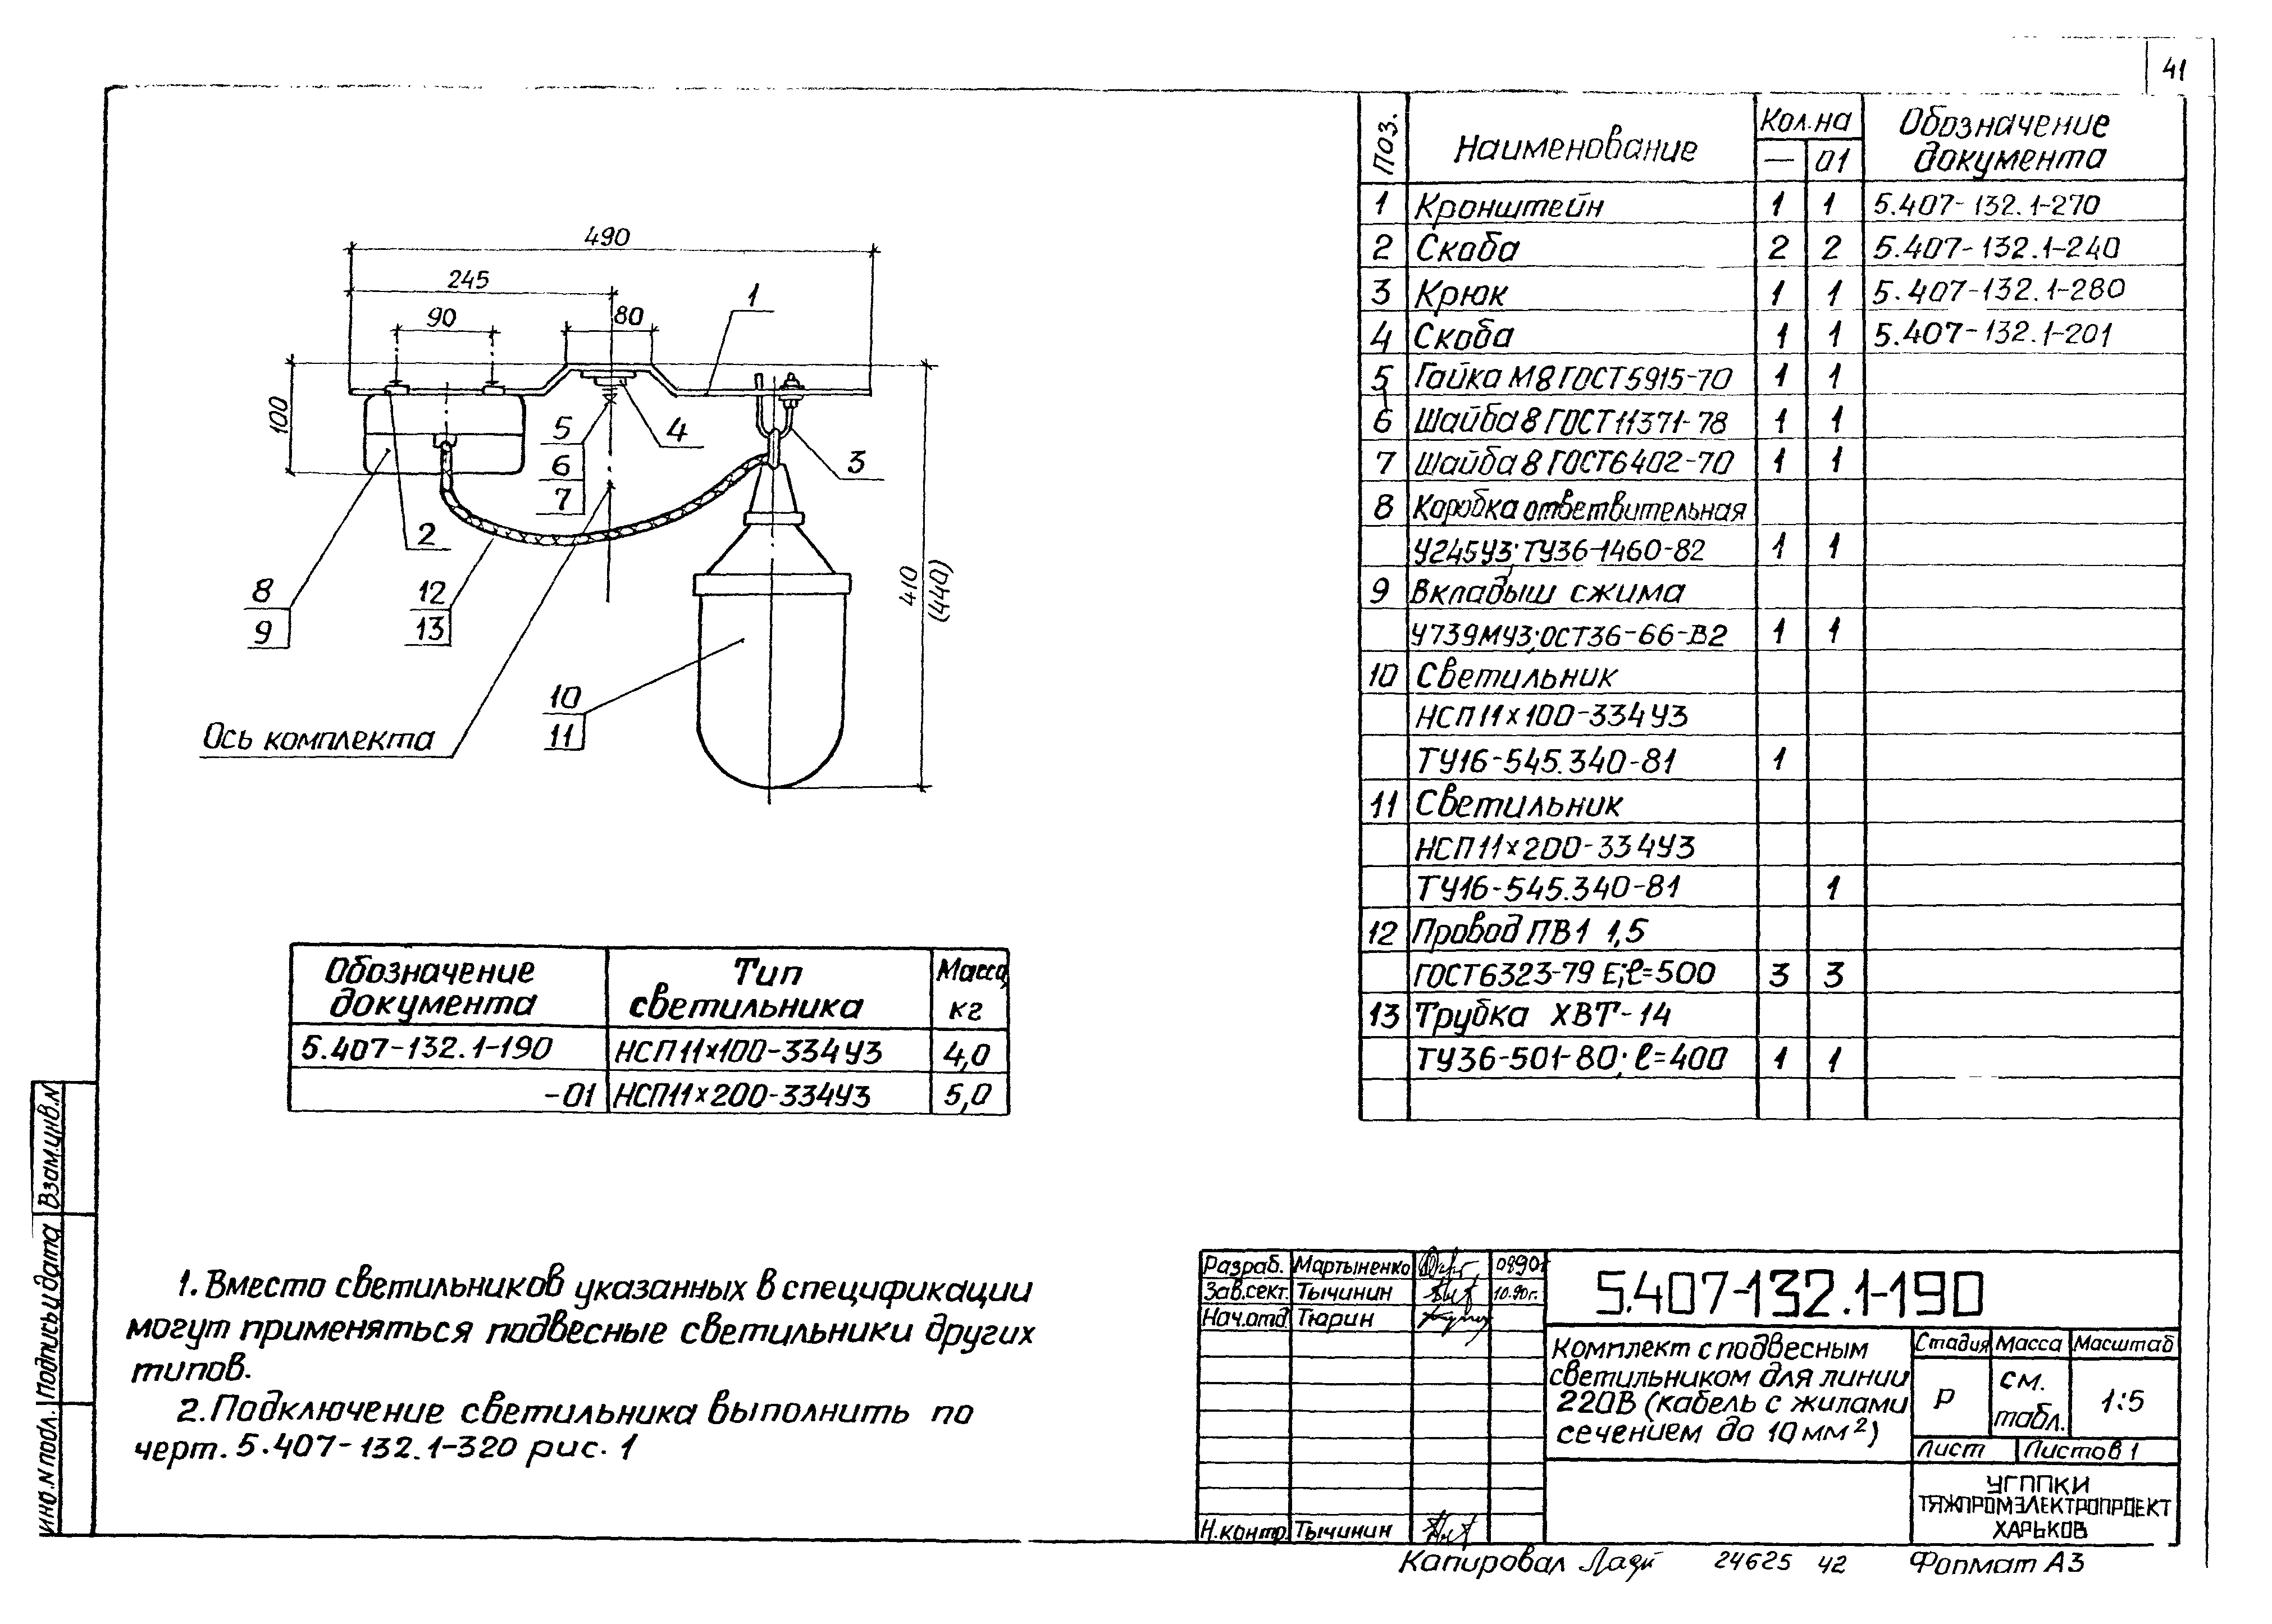 41
490
245
90
80
100
410
(440)
1
2
3
4
5
6
7
8
9
10
11
12
13
Ось комплекта
Поз.
Наименование
Кол.на
— 01
Обозначение
документа
1 Кронштейн 1 1 5.407-132.1-270
2 Скоба 2 2 5.407-132.1-240
3 Крюк 1 1 5.407-132.1-280
4 Скоба 1 1 5.407-132.1-201
5 Гайка М8 ГОСТ5915-70 1 1
6 Шайба 8 ГОСТ11371-78 1 1
7 Шайба 8 ГОСТ6402-70 1 1
8 Коробка ответвительная
У245У3; ТУ36-1460-82 1 1
9 Вкладыш сжима
У739МУ3; ОСТ36-66-82 1 1
10 Светильник
НСП11х100-334У3
ТУ16-545.340-81 1
11 Светильник
НСП11х200-334У3
ТУ16-545.340-81 1
12 Провод ПВ1 1,5
ГОСТ6323-79 Е; ℓ=500 3 3
13 Трубка ХВТ-14
ТУ36-501-80; ℓ=400 1 1
Обозначение
документа
Тип
светильника
Масса,
кг
5.407-132.1-190 НСП11х100-334У3 4,0
-01 НСП11х200-334У3 5,0
1. Вместо светильников указанных в спецификации
могут применяться подвесные светильники других
типов.
2. Подключение светильника выполнить по
черт. 5.407-132.1-320 рис. 1
Инв.N подл. Подпись и дата Взам.инв.N
Разраб. Мартыненко 0890г
Зав.сект. Тычинин 10.90г.
Нач.отд. Тюрин
Н.контр. Тычинин
5.407-132.1-190
Комплект с подвесным
светильником для линии
220В (кабель с жилами
сечением до 10 мм²)
Стадия Масса Масштаб
Р см.
табл. 1:5
Лист Листов 1
УГППКИ
ТЯЖПРОМЭЛЕКТРОПРОЕКТ
ХАРЬКОВ
Копировал 24625 42 Формат А3